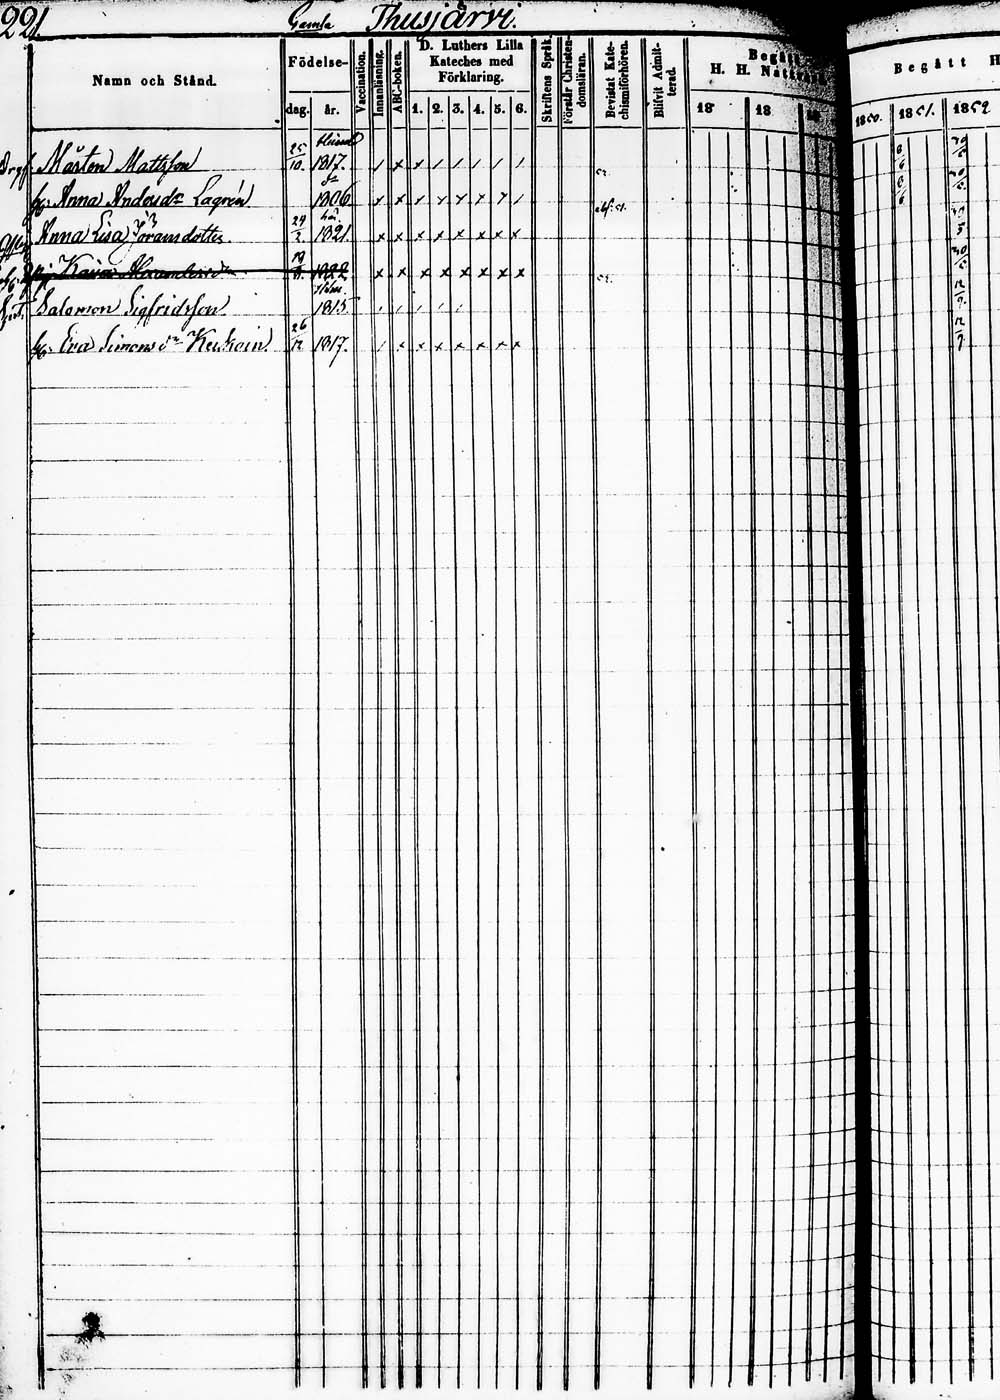 221
Gamla Thusjärvi.
Namn och Stånd.
Födelse-
dag. år.
Vaccination.
Innanläsning.
ABC-boken.
D. Luthers Lilla
Kateches med
Förklaring.
1. 2. 3. 4. 5. 6.
Skriftens Språk.
Förstår Christen-
domsläran.
Bevistat Kate-
chismiförhören.
Blifvit Admit-
terad.
Begått
H. H. Nattvard
18 18
Begått H
1850. 1851. 1852
Mårten Mattsson 25/10. 1817.
Anna Andersdr Lagrén 1806
Anna Lisa Jöransdotter 1821
Kaisa 1822
Salomon Sigfridsson 1815
Eva Simonsdr 26/12 1817.